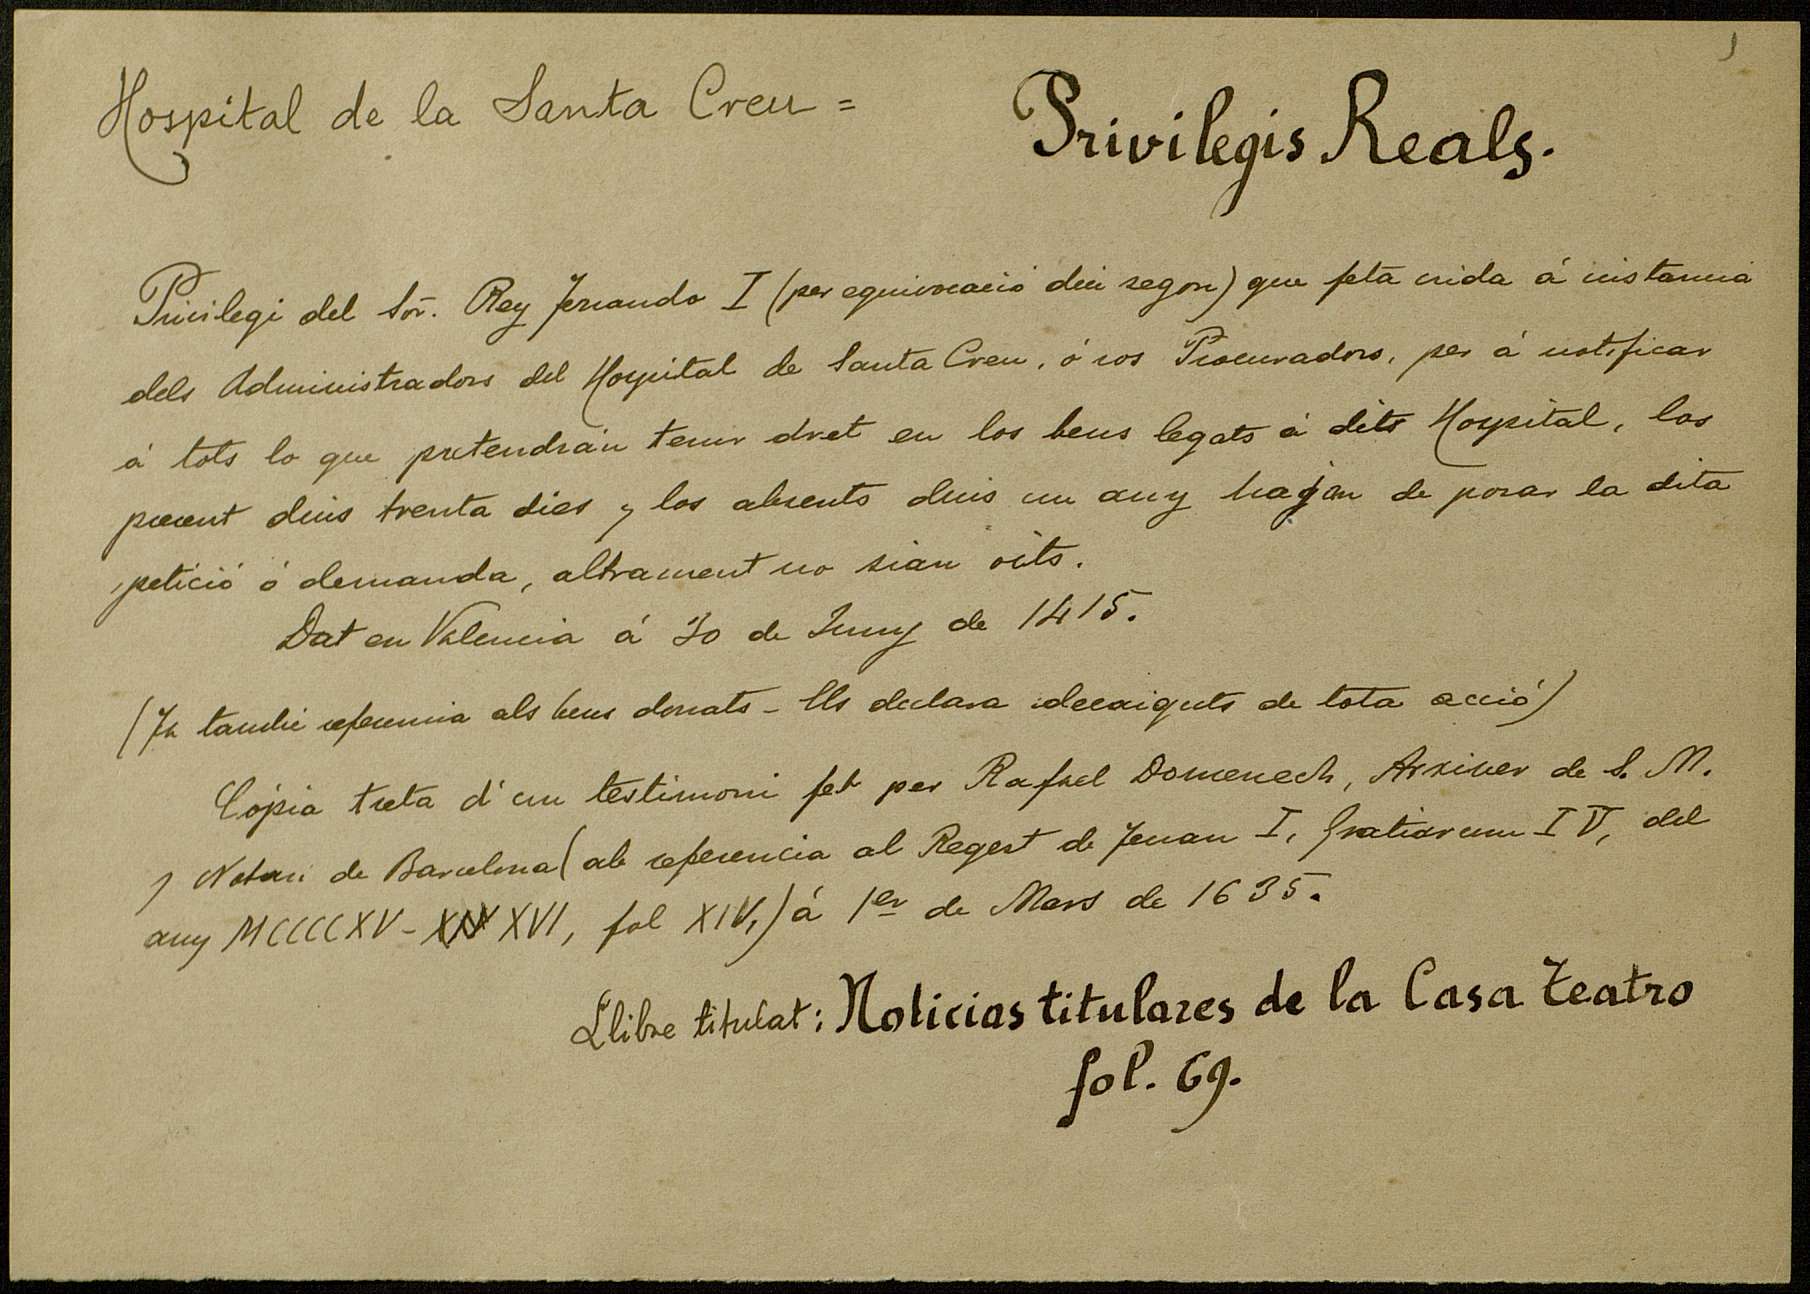 Hospital de la Santa Creu = Privilegis Reals.
Privilegi del Sor. Rey Fernando I (per equivocació diu segon) que feta crida á instancia
dels Administradors del Hospital de Santa Creu, ó sos Procuradors, per á notificar
á tots lo que pretendrán tenir dret en los bens legats á dits Hospital, los
present dins trenta dies y los absents dins un any hajan de posar la dita
petició ó demanda, altrament no sian oits.
Dat en Valencia á 30 de Juny de 1415.
(Fa també referencia als bens donats - Els declara decaiguts de tota acció)
Cópia treta d'un testimoni fet per Rafael Domenech, Arxiver de S. M.
y Notari de Barcelona (ab referencia al Regest de Ferran I, Gratiarum IV, del
any MCCCCXV - XVI, fol XIV,) á 1er de Mars de 1635.
Llibre titulat: Noticias titulares de la Casa Teatro
fol. 69.